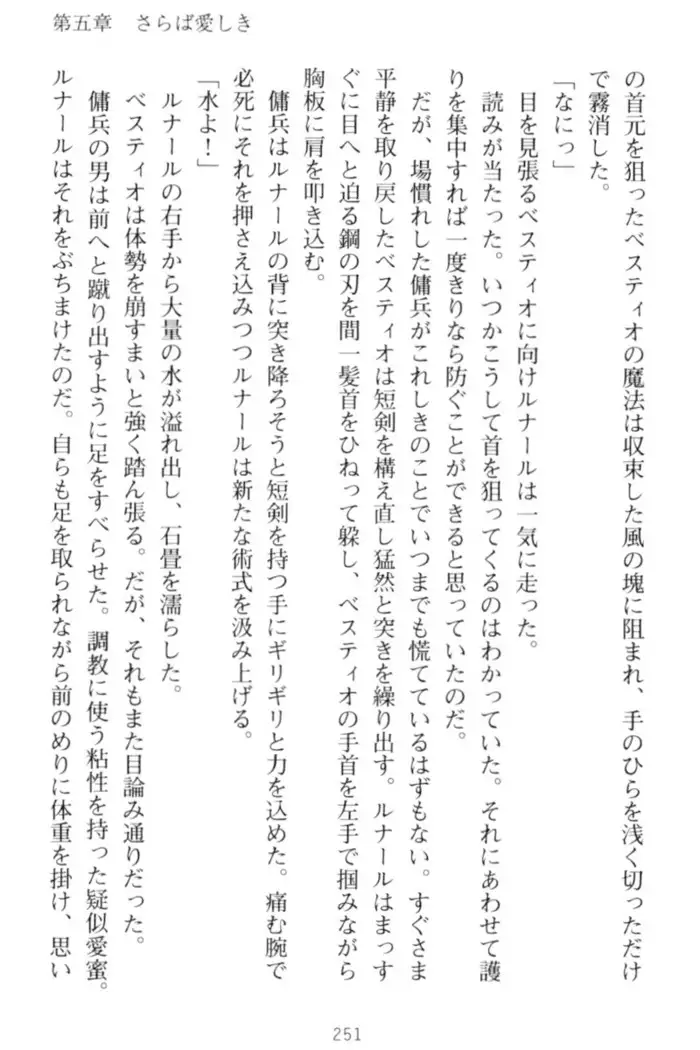 第五章　さらば愛しき
の首元を狙ったベスティオの魔法は収束した風の塊に阻まれ、手のひらを浅く切っただけ
で霧消した。
「なにっ」
目を見張るベスティオに向けルナールは一気に走った。
読みが当たった。いつかこうして首を狙ってくるのはわかっていた。それにあわせて護
りを集中すれば一度きりなら防ぐことができると思っていたのだ。
だが、場慣れした傭兵がこれしきのことでいつまでも慌てているはずもない。すぐさま
平静を取り戻したベスティオは短剣を構え直し猛然と突きを繰り出す。ルナールはまっす
ぐに目へと迫る鋼の刃を間一髪首をひねって躱し、ベスティオの手首を左手で掴みながら
胸板に肩を叩き込む。
傭兵はルナールの背に突き降ろそうと短剣を持つ手にギリギリと力を込めた。痛む腕で
必死にそれを押さえ込みつつルナールは新たな術式を汲み上げる。
「水よ！」
ルナールの右手から大量の水が溢れ出し、石畳を濡らした。
ベスティオは体勢を崩すまいと強く踏ん張る。だが、それもまた目論み通りだった。
傭兵の男は前へと蹴り出すように足をすべらせた。調教に使う粘性を持った疑似愛蜜。
ルナールはそれをぶちまけたのだ。自らも足を取られながら前のめりに体重を掛け、思い
251